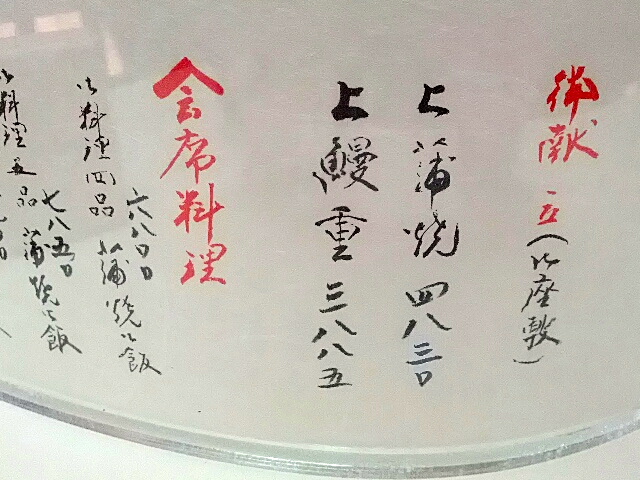 御献立(お座敷)
上蒲焼 四八三〇
上鰻重 三八八五
会席料理
お料理四品 お蒲焼お飯
六八〇〇
お料理五品 お蒲焼お飯
七八五〇